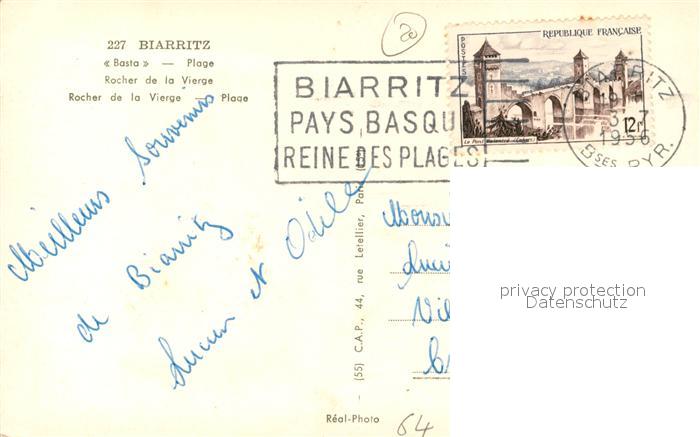 227 BIARRITZ
« Basta » — Plage
Rocher de la Vierge
Rocher de la Vierge — Plage
20
BIARRITZ
PAYS BASQU
REINE DES PLAGES
REPUBLIQUE FRANÇAISE
POSTES
12f
Le Pont Valentré (Cahors)
BIARRITZ
1956
Bses PYR.
Meilleurs Souvenirs
de Biarritz
Lucien et Odile
(55) C.A.P., 44, rue Letellier, Paris (15e)
Monsi
Vil
privacy protection
Datenschutz
Réal-Photo
64